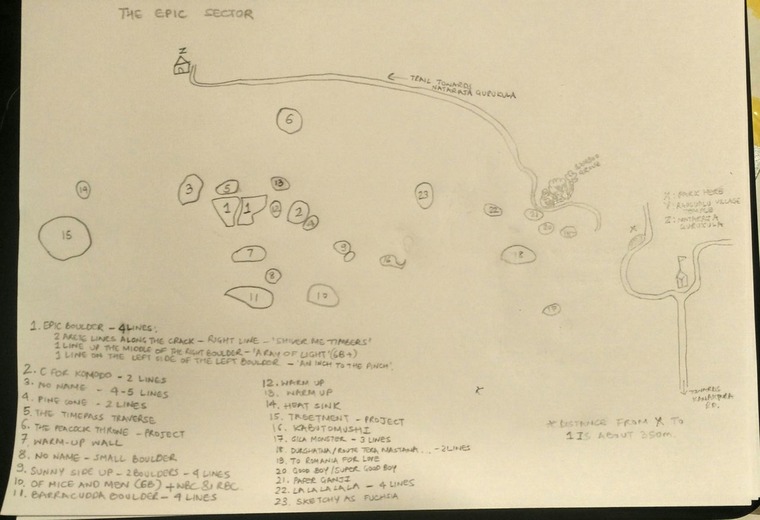 THE EPIC SECTOR
Z
← TRAIL TOWARDS
NATARAJA GURUKULA
6
BAMBOO
GROVE
14
3
5
13
23
1
1
12
2
4
22
21
20
15
7
9
16
18
8
11
10
19
X: PARK HERE
TEMPLE
Z: NATARAJA
GURUKULA
X
Y
TOWARDS
KANAKAPURA
RD.
1. EPIC BOULDER - 4 LINES;
2 ARETE LINES ALONGS THE CRACK - RIGHT LINE - 'SHIVER ME TIMBERS'
1 LINE UP THE MIDDLE OF THE RIGHT BOULDER - 'A RAY OF LIGHT' (6B+)
1 LINE ON THE LEFT SIDE OF THE LEFT BOULDER - 'AN INCH TO THE PINCH'.
2. C FOR KOMODO - 2 LINES
3. NO NAME - 4-5 LINES
4. PINE CONE - 2 LINES
5. THE TIMEPASS TRAVERSE
6. THE PEACOCK THRONE - PROJECT
7. WARM-UP WALL
8. NO NAME - SMALL BOULDER
9. SUNNY SIDE UP - 2 BOULDERS - 4 LINES
10. OF MICE AND MEN (6B) + NBC & RBC
11. BARRACUDDA BOULDER - 4 LINES
12. WARM UP
13. WARM UP
14. HEAT SINK
15. TREETMENT - PROJECT
16. KABUTOMUSHI
17. GILA MONSTER - 3 LINES
18. DURGHATNA/ROUTE TERA MASTANA... - 2 LINES
19. TO ESMANIA FOR LOVE
20. GOOD BOY/SUPER GOOD BOY
21. PAPER GANJI
22. LA LA LA LA LA - 4 LINES
23. SKETCHY AS FUCHSIA
* DISTANCE FROM X TO
1 IS ABOUT 350m.